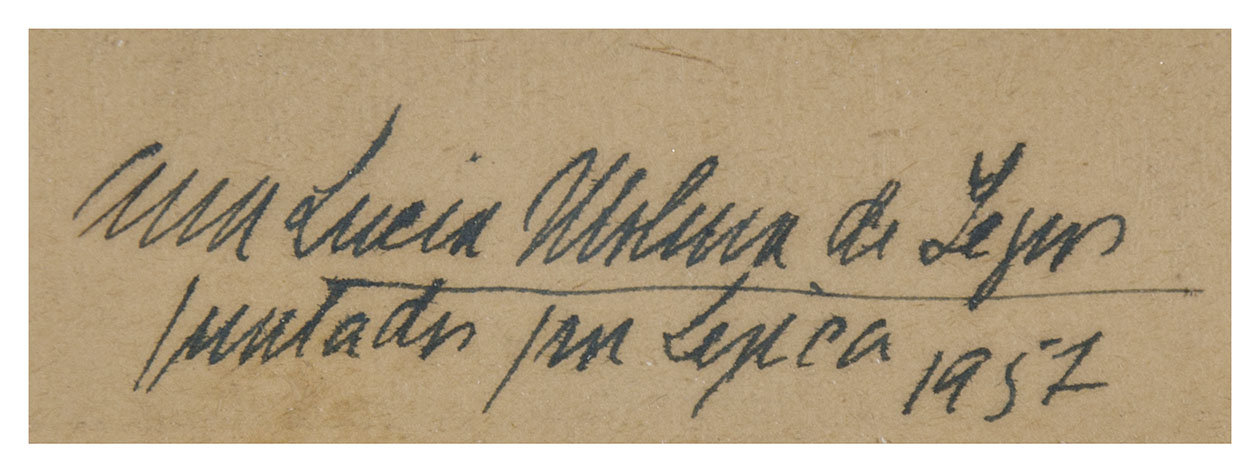 Ana Lucia Molina de
pintados por Lepica 1957